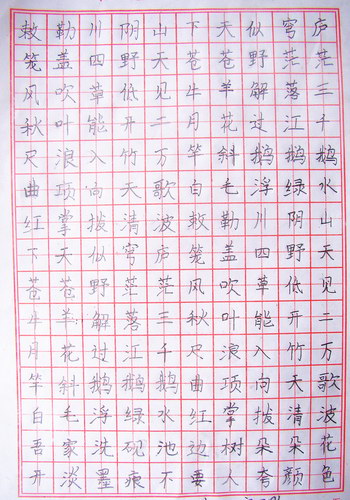 敕勒川阴山下天似穹庐
笼盖四野天苍苍野茫茫
风吹草低见牛羊解落三
秋叶能开二月花过江千
尺浪入竹万竿斜鹅鹅鹅
曲项向天歌白毛浮绿水
红掌拨清波敕勒川阴山
下天似穹庐笼盖四野天
苍苍野茫茫风吹草低见
牛羊解落三秋叶能开二
月花过江千尺浪入竹万
竿斜鹅鹅鹅曲项向天歌
白毛浮绿水红掌拨清波
吾家洗砚池边树朵朵花
开淡墨痕不要人夸颜色